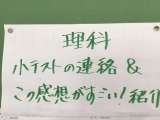 理科
小テストの連絡&
この感想がすごい!紹介